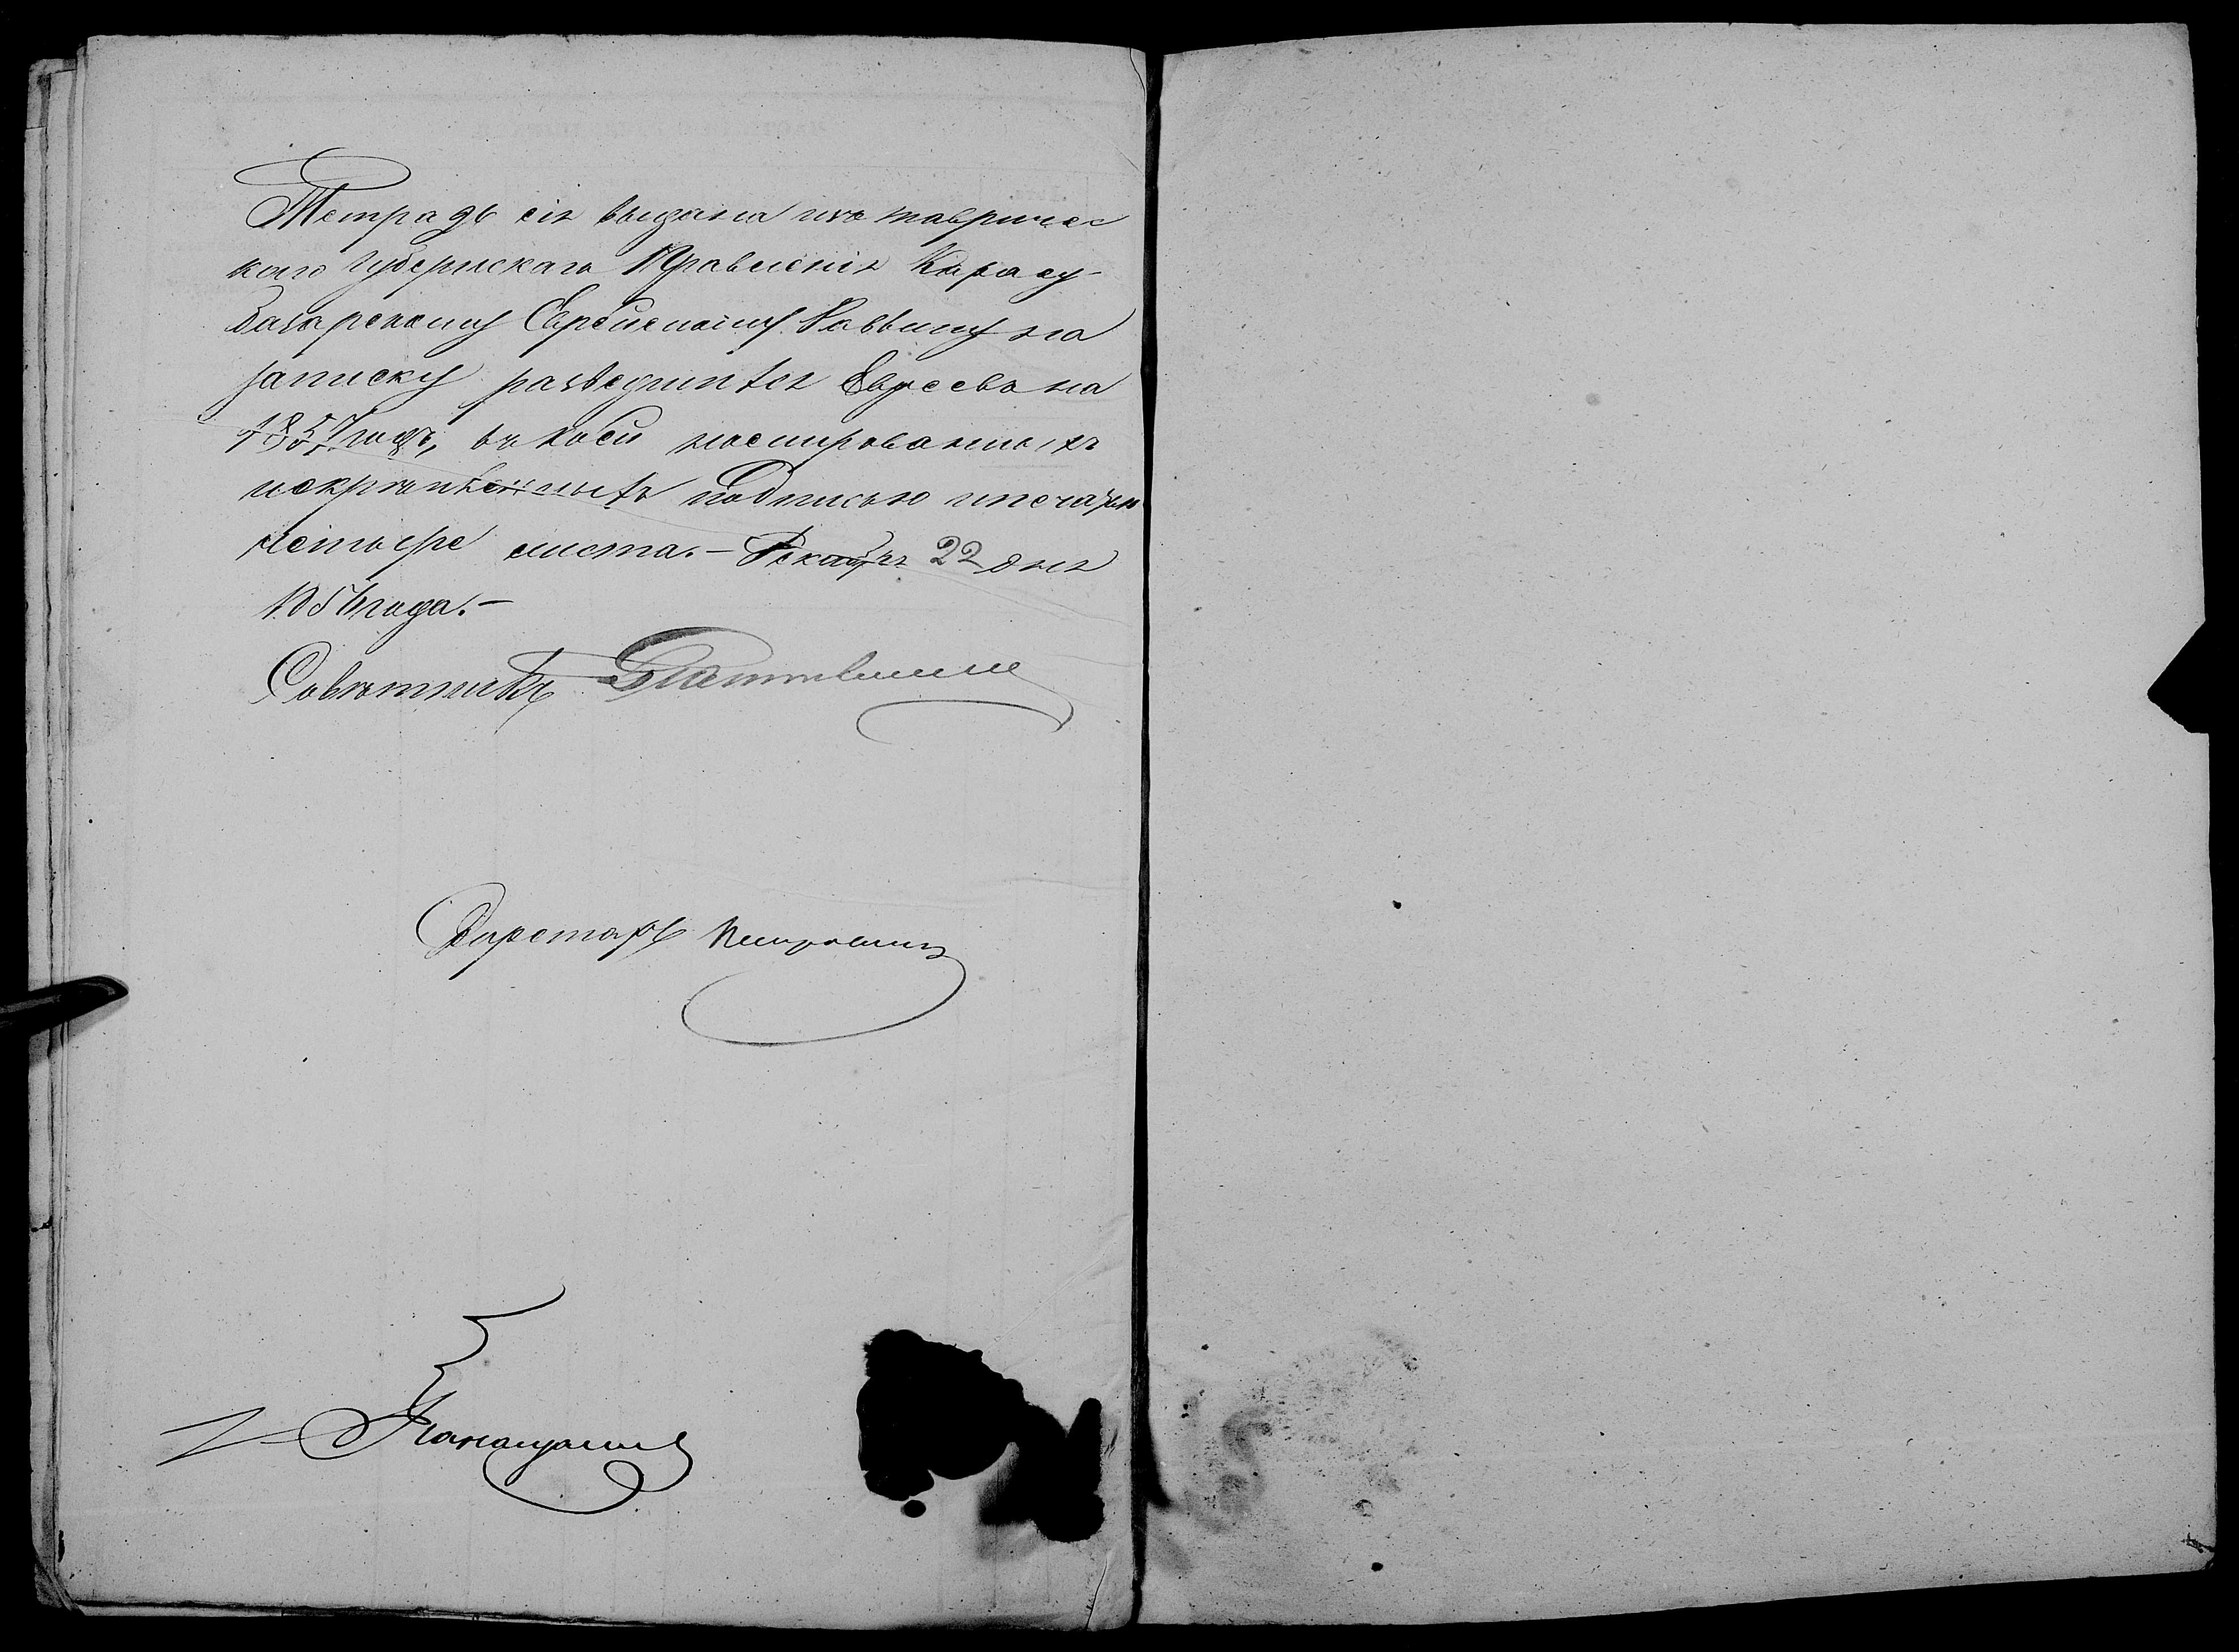 Тетрадь сія выдана изъ таври­чес
каго Губернскаго Правленія Карасу-
базарскому Еврейскому Раввину на
записку разведшихся Евреевъ на
1857 годъ, въ коей носмерованныхъ
искрѣпленныхъ подписью ипечатью
четыре листа.— Декабря 22 дня
1856 года.—
Совѣтникъ
Секретарь